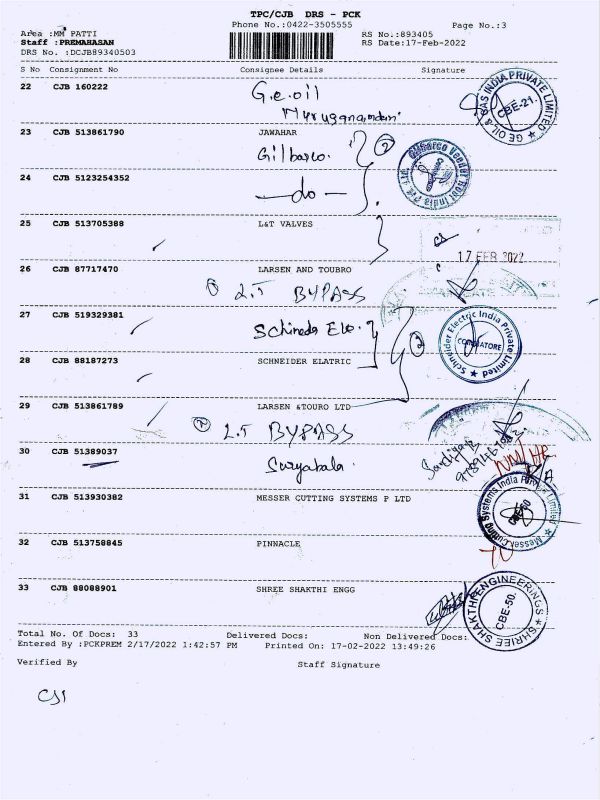 TPC/CJB DRS - PCK
Phone No.:0422-3505555
Page No.:3
Area :MM PATTI
RS No.:893405
Staff :PREMAHASAN
RS Date:17-Feb-2022
DRS No. :DCJB89340503
S No Consignment No Consignee Details Signature
22 CJB 160222 G.e.oil
Muruganandam
GE OIL & GAS INDIA PRIVATE LIMITED
CBE-21.
23 CJB 513861790 JAWAHAR
Gilbarco. 2
Gilbarco Veeder Root India Pvt. Ltd.
24 CJB 5123254352 —do—
25 CJB 513705388 L&T VALVES
17 FEB 2022
26 CJB 87717470 LARSEN AND TOUBRO
2.5 BYPASS
27 CJB 519329381 Schineder Ele.
2
Schneider Electric India Private Limited
COIMBATORE
28 CJB 88187273 SCHNEIDER ELATRIC
29 CJB 513861789 LARSEN &TOURO LTD
2 2.5 BYPASS
30 CJB 51389037 Suryabala.
31 CJB 513930382 MESSER CUTTING SYSTEMS P LTD
Messer Cutting Systems India Private Limited
32 CJB 513758845 PINNACLE
33 CJB 88088901 SHREE SHAKTHI ENGG
SHRIEE SHAKTHI ENGINEERINGS
CBE-50.
Total No. Of Docs: 33 Delivered Docs: Non Delivered Docs:
Entered By :PCKPREM 2/17/2022 1:42:57 PM Printed On: 17-02-2022 13:49:26
Verified By Staff Signature